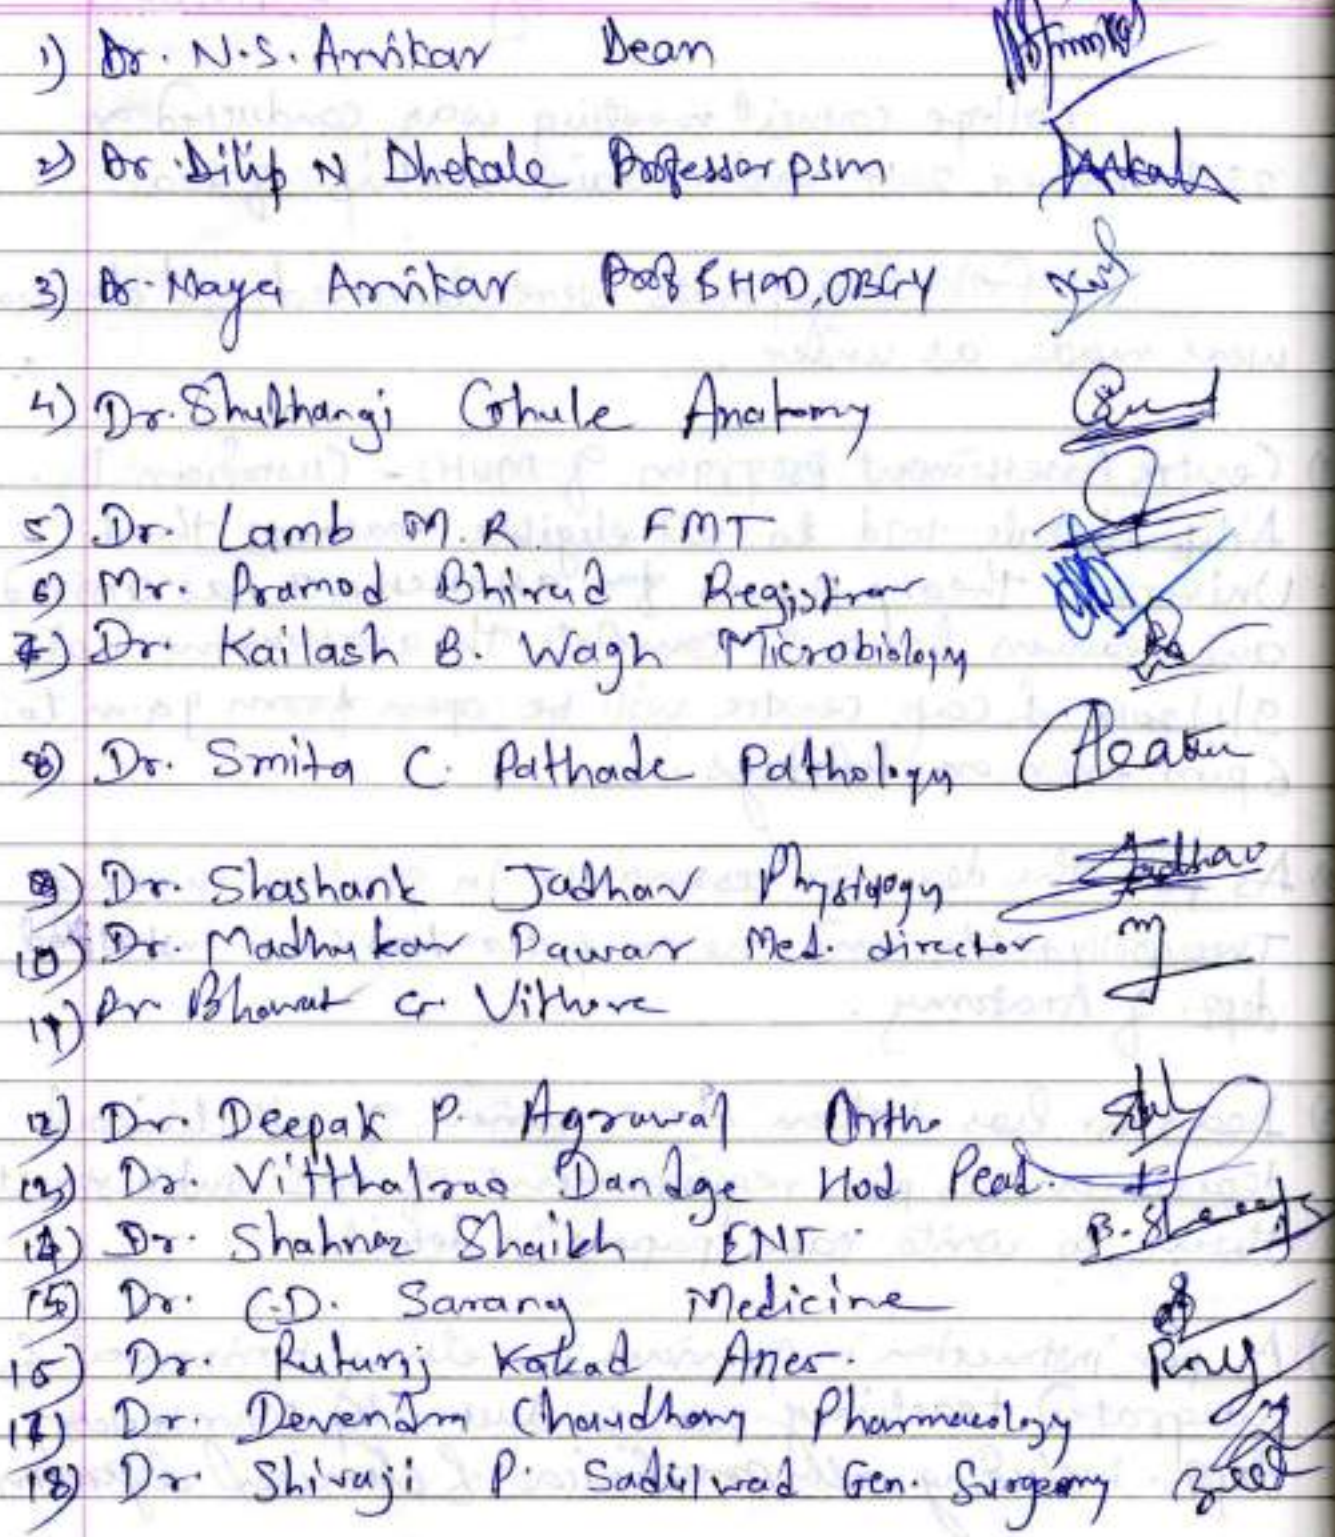 1) Dr. N.S. Arvikar Dean
2) Dr. Dilip N Dhekale Professor PSM
3) Dr. Maya Arvikar Prof & HOD, OBGY
4) Dr. Shubhangi Ghule Anatomy
5) Dr. Lamb M.R. FMT
6) Mr. Pramod Bhirud Registrar
7) Dr. Kailash B. Wagh Microbiology
8) Dr. Smita C. Pathade Pathology
9) Dr. Shashank Jadhav Physiology Jadhav
10) Dr. Madhukar Pawar Med. director
11) Dr Bharat G. Vithore
12) Dr. Deepak P. Agrawal Ortho
13) Dr. Vitthalrao Dandge Hod Pead.
14) Dr. Shahnaz Shaikh ENT
15) Dr. C.D. Sarang Medicine
16) Dr. Ruturaj Kakad Anes.
17) Dr. Devendra Chaudhary Pharmacology
18) Dr. Shivaji P. Sadulwad Gen. Surgeory